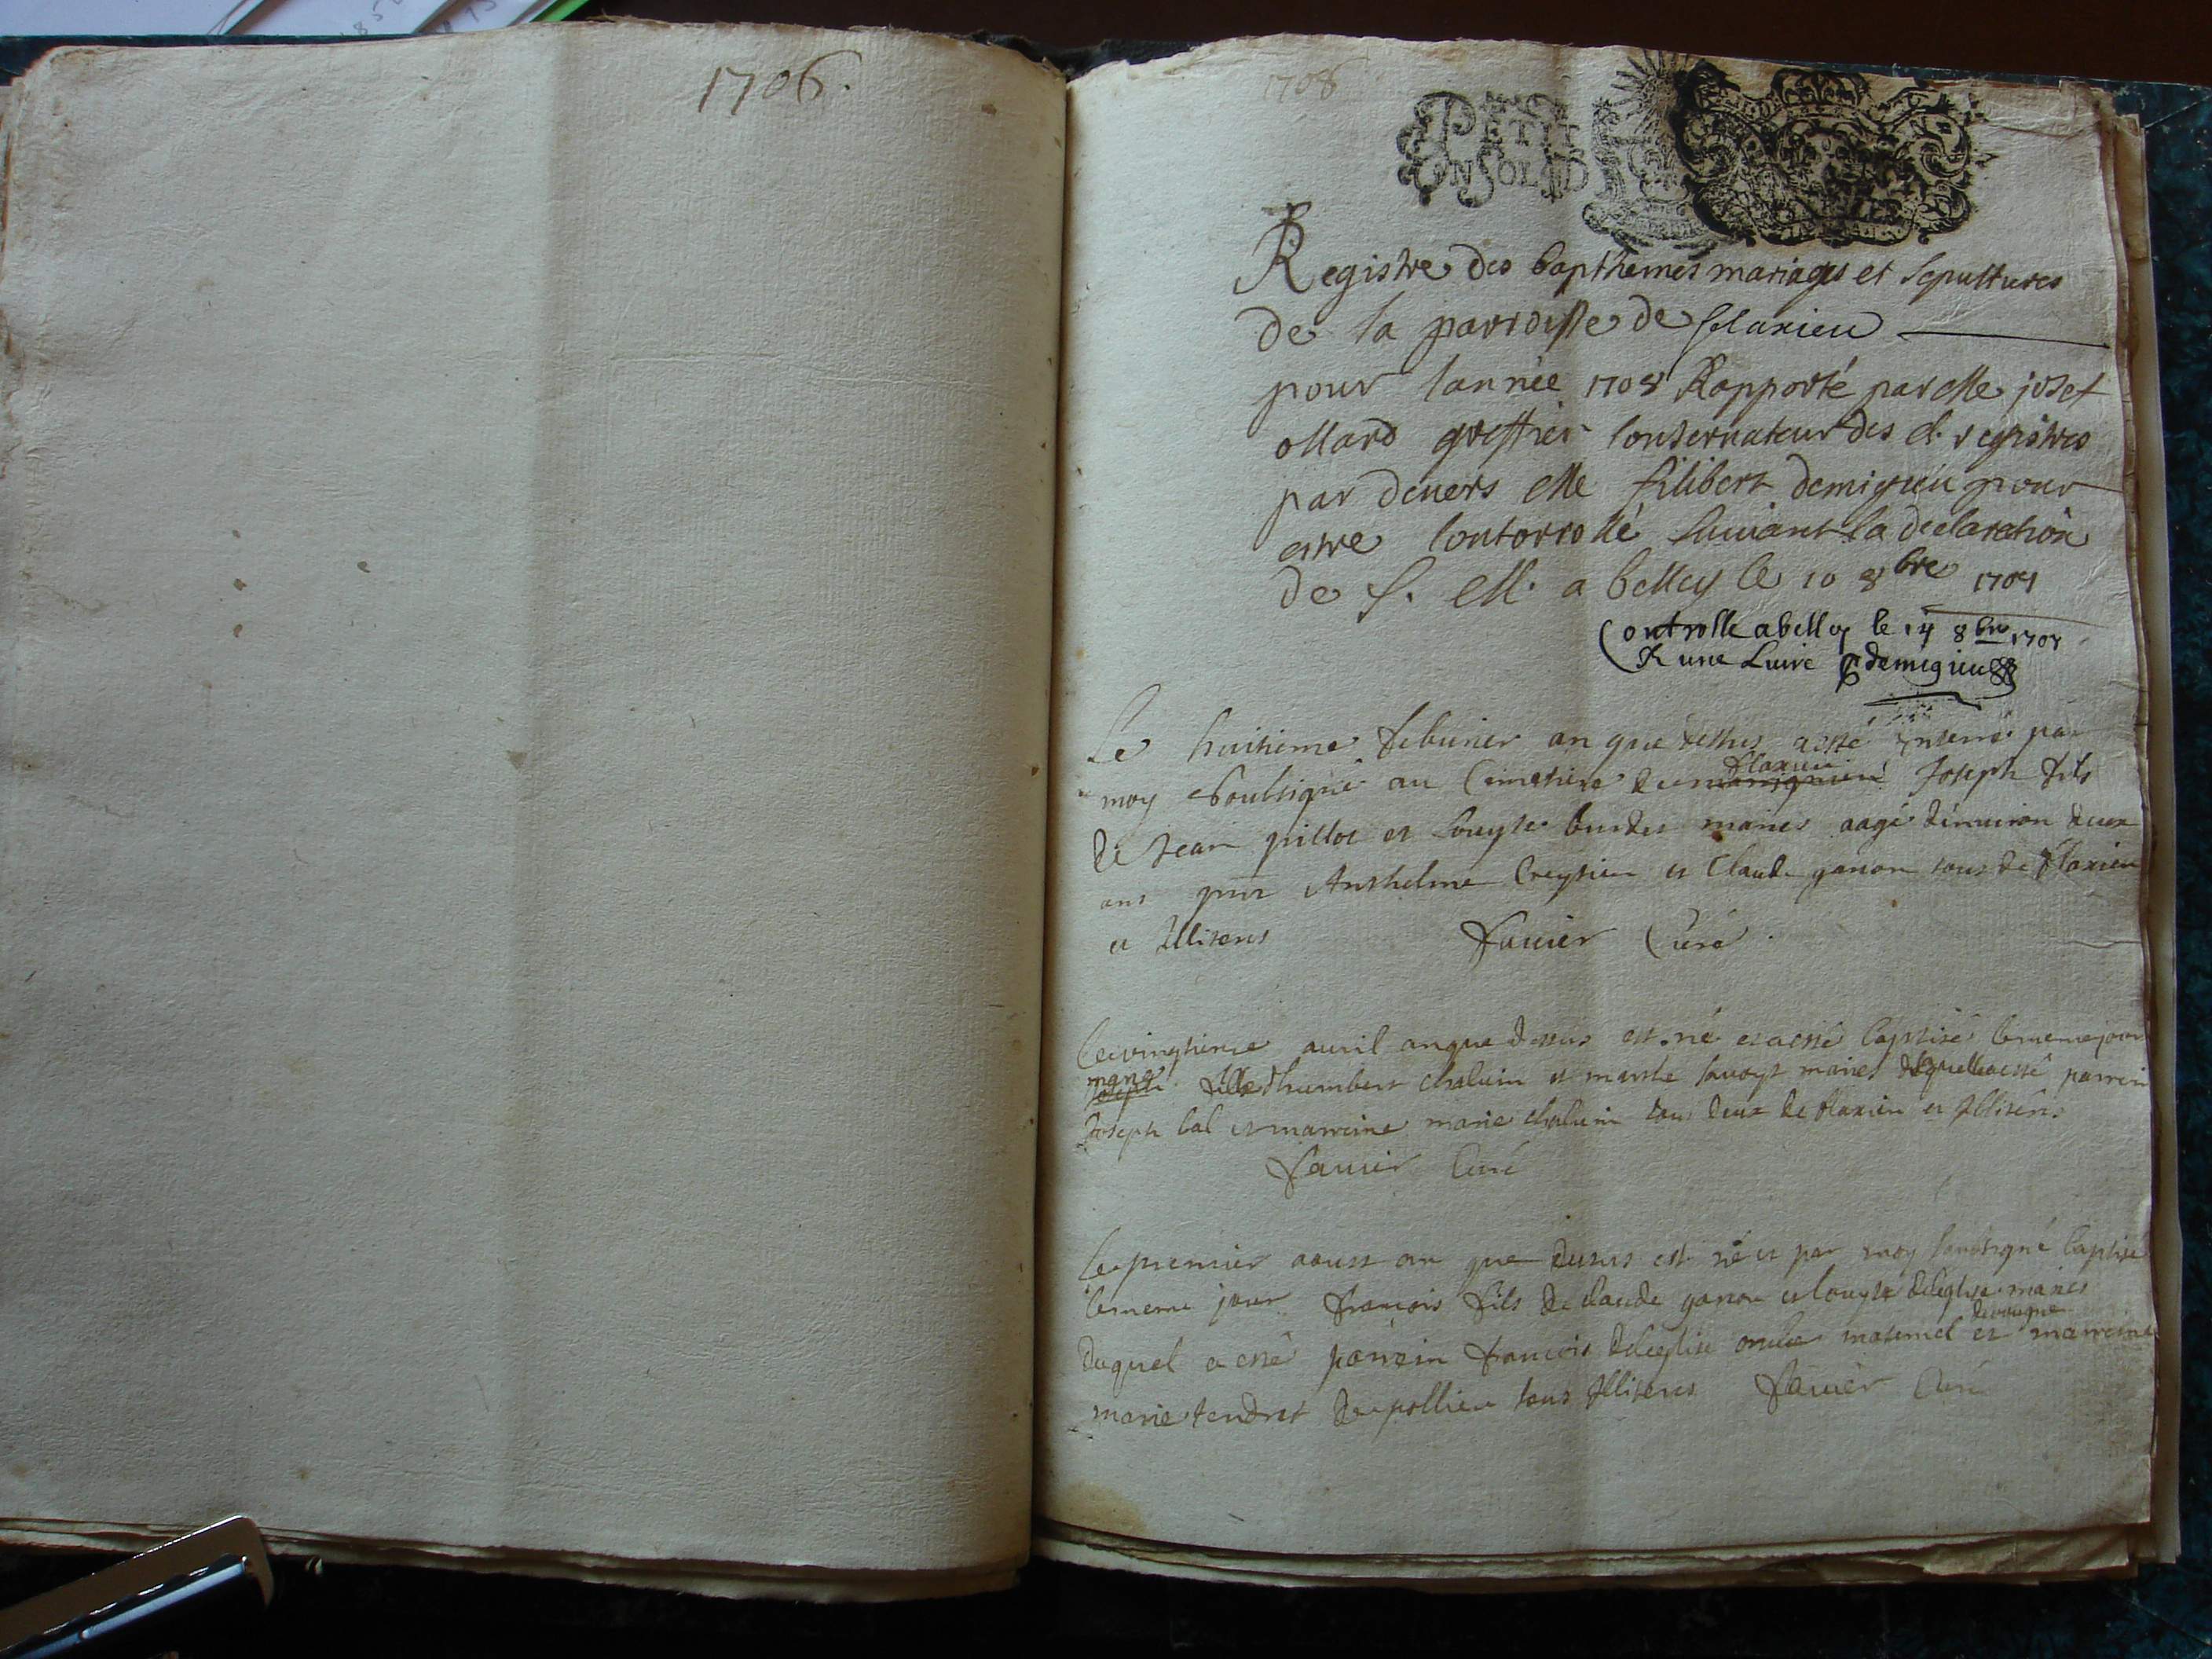 1706.
1708
PETIT
EN SOLD
Registre des bapthemes mariages et sepultures
de la parroisse de flaxieu
pour lannee 1708 Rapporté par Me josef
ollard greffier consernateur des d. registres
par devers Me filibert demigieu pour
estre contorrollé suiuant la declaration
de S. M. a belley le 10 8bre 1708
Controlle abelley le 14 8bre 1708
R une Liure demigieu
Le huitieme feburier an que dessus a esté enterré par
moy soubsigné au Cimetiere de flaxieu Joseph fils
de Jean pillot et louyse burdet maries aagé denuiron deux
ans pnts Anthelme Creysieu et Claude ganon tous de flaxieu
et Illiterés fauier Curé.
Le vingtieme auril an que dessus est né et a esté baptisé le meme jour
marie fille dhumbert chaluin et marthe sauoye mariés de quelle a esté parrein
Joseph bal et marreine marie chaluin tous deux de flaxieu et Illiterés
fauier Curé
Le premier aoust an que dessus est né et par moy soubsigné baptisé
le meme jour françois fils de claude ganon et louyse deleglise mariés
duquel a esté parrein francois deleglise oncle maternel et marreine
marie tendret de pollieu tous Illiterés fauier Curé